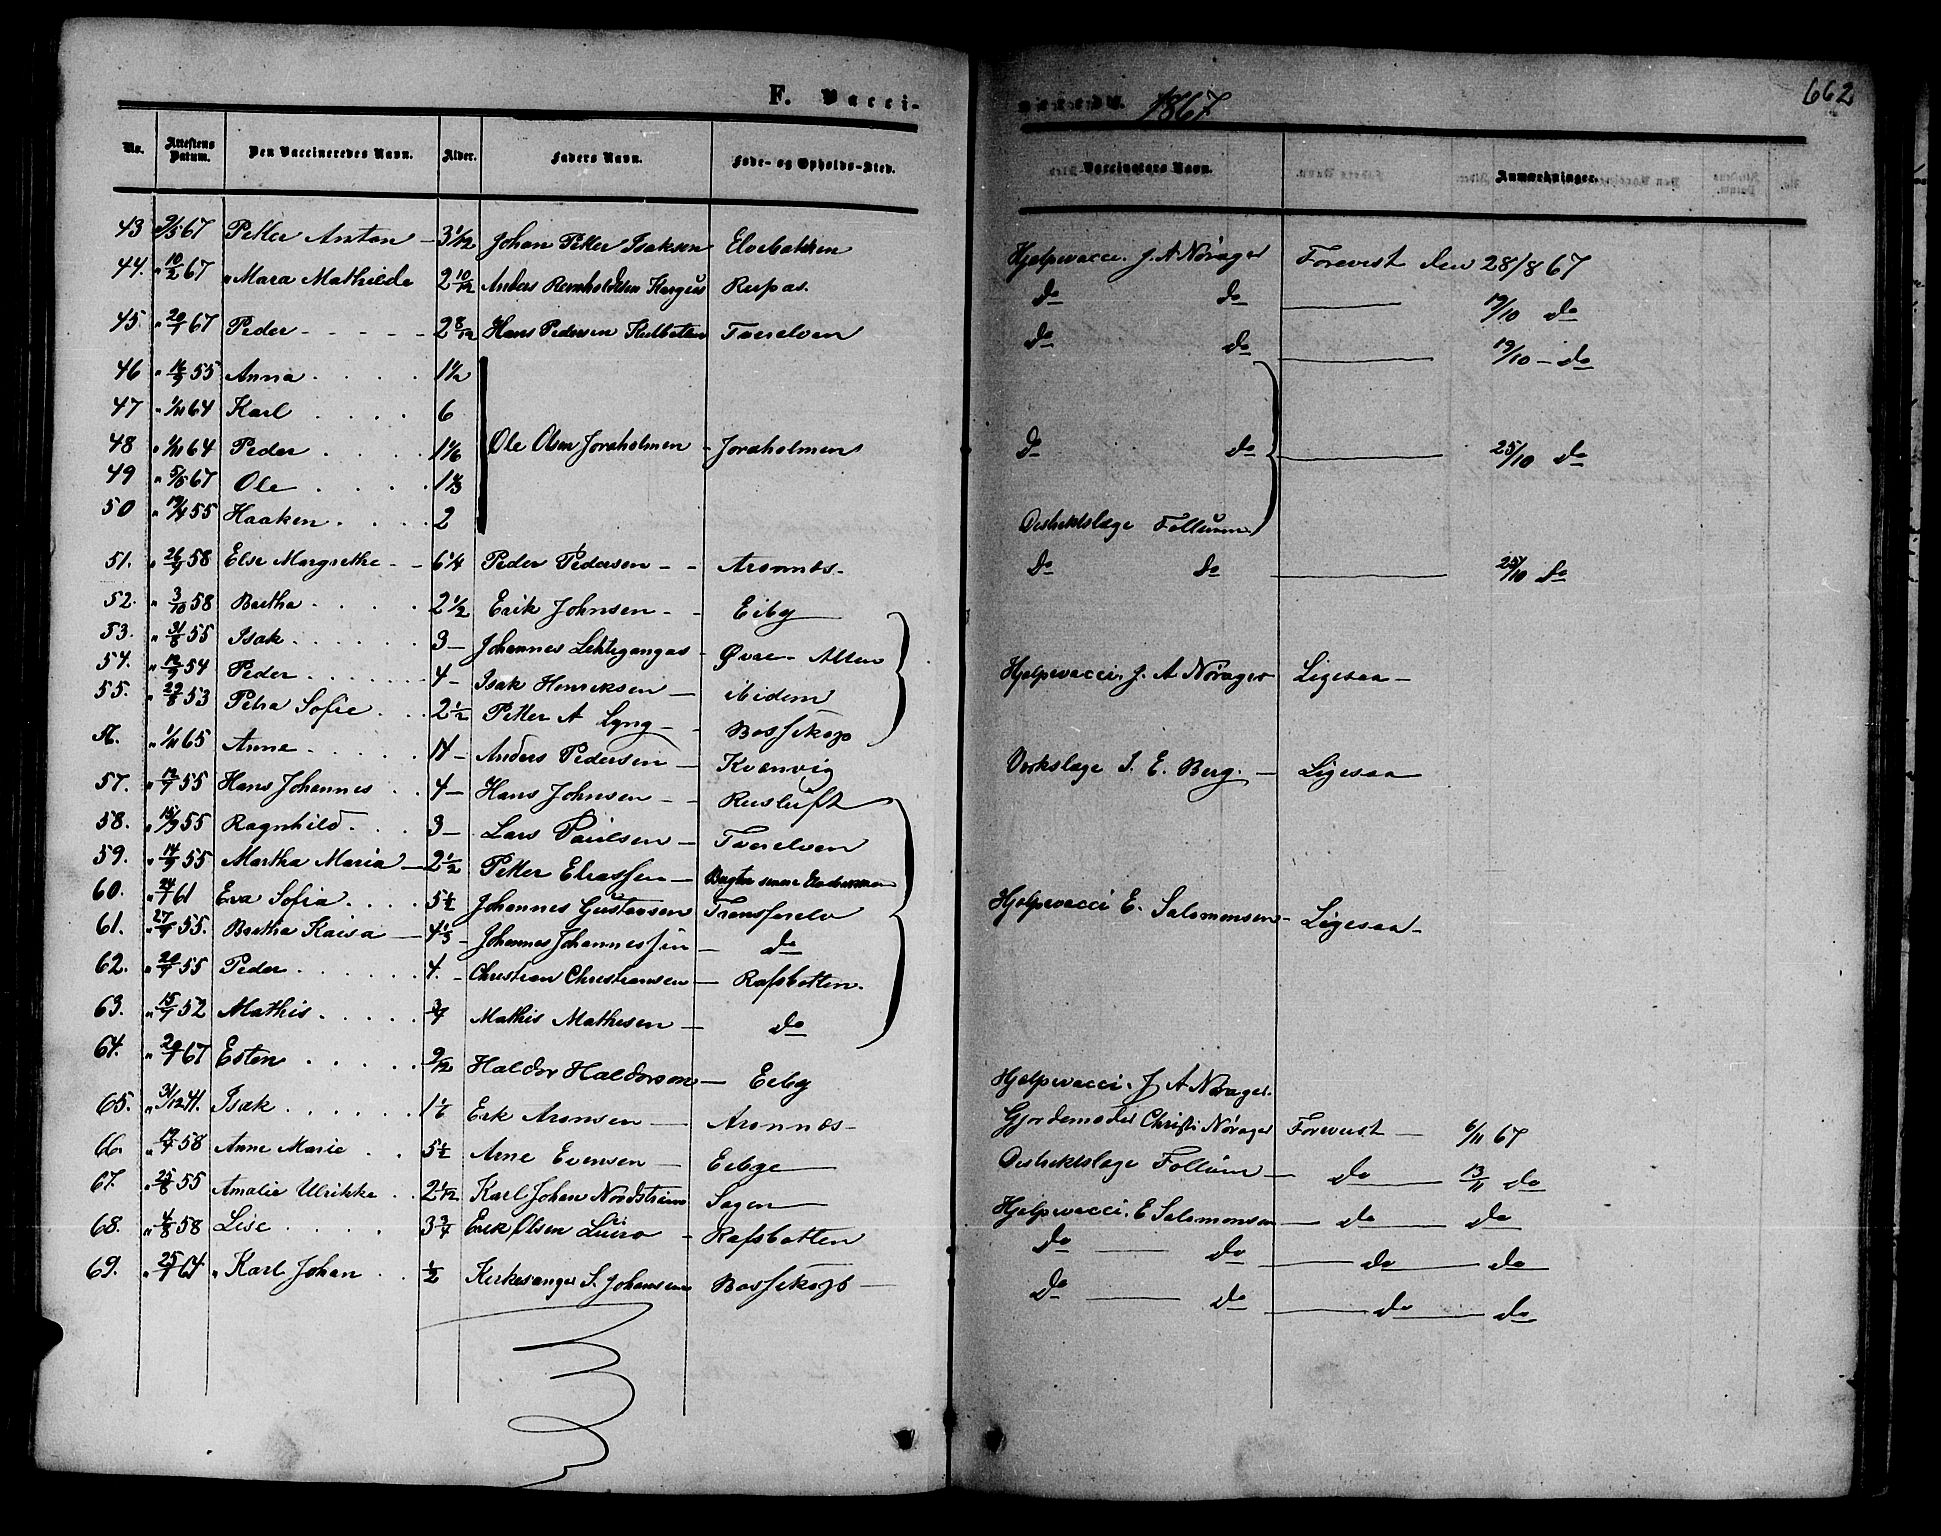 F. Vacci-
nerede. 1867
662
No. Attestens Datum. Den Vaccineredes Navn. Alder. Faders Navn. Føde- og Opholds-Sted. Vaccinators Navn. Anmærkninger.
43 9/5 67 Petter Anton - 3 1/12 Johan Petter Isaksen Elvebakken Hjelpevacci. J. A Nørager Forevist den 28/8 67
44. " 10/2 67 " Mara Mathilde 2 10/12 Anders Reinholdtsen Rupas. do do — 19/10 do
45. " 20/7 67 Peder - - - - - 2 8/12 Hans Pedersen Tverelven do do — 19/10 - do
46 55 Anna . . . . 1 1/2
47 " 1/11 64 Karl . . . . 6
48 " 1/11 64 Peder . . . . 1 1/6 Ole Olsen Joraholmen - Joraholmen do do — 25/10 do
49 " 5/5 67 Ole . . . . 1 1/3
50 " 55 Haaken . . . . 2 Distriktslæge Follum
51. " 26/9 58 Else Margrethe - - 6 1/4 Peder Pedersen - - Aronnæs - do do — 25/10 do
52. " 3/10 58 Bertha . . . . 2 1/2 Erik Johnsen - - Eiby
53. " 31/8 55 Isak . . . . . . 3 — Johannes - Øvre - Alten
54. " 12/9 54 Peder . . . . . . 4 - Isak Henriksen — ibidem Hjelpevacci. J. A Nørager Ligesaa -
55. " 29/8 53 Petra Sofie . . . 2 1/2 Petter A Lyng - - Bossekop
" 1/11 65 Anne . . . . . 14 - Anders Pedersen — Kvænvig I. E. Berg. — Ligesaa
57. " 12/9 55 Hans Johannes . . 4 — Hans Johnsen - - Rusluft
58. " 55 Ragnhild . . . 3 — Lars Paulsen — Tverelven
59. " 14/9 55 Martha Maria — 2 1/2 Petter Eliassen —
60. " 24/7 61 Eva Sofia . . . . 5 1/2 Johannes Gustavsen Transfarelv Hjelpevacci E. Salomonsen - Ligesaa -
61. " 27/7 55. Bertha Kaisa — 4 1/3 - Johannes Johannessen — do
62. " 20/7 55 Peder . . . . . . 4. - Christian Christiansen — Rafsbotten.
63. " 15/7 52 Mathis . . . . . 3/4 Mathis Mathisen — do
64. " 20/7 67 Esten . . . . 9/12 Haldor Haldorsen — Eiby Hjelpevacci. J A Nørager.
65. " 31/12 41. Isak . . . . . . 1 1/6 Erik Aronsen — Aronnæs - Gjordemoder Christi Nørager Forevist — 6/11 67
66. " 58 Anne Marie . . 5 1/2 Arne Evensen — Eibye Distriktslæge Follum — do — 13/11 do
67. " 25/8 55 Amalie Ulrikke . . 2 1/12 Karl Johan Nordstrøm Sagen — Hjelpevacci. E Salomonsen — do — do
68. " 4/8 58 Lise . . . . 3 3/4 Erik Olsen - Rafsbotten do — do — do — do
69. " 25/7 64 " Karl Johan . . 1/2 Kirkesanger S. Johansen Bossekop — do — do — do — do